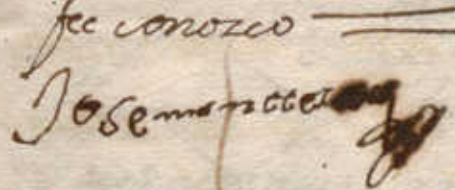 fee conozco
Jose montte